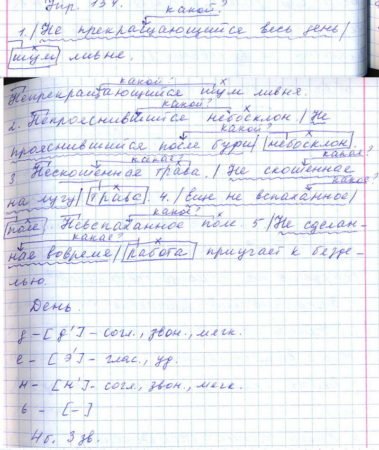 Упр. 134.
какой?
1./Не прекращающийся весь день/
шум ливне.
какой? х
Непрекращающийся шум ливне.
какой? х
2. Непрояснившийся небосклон./Не
какой? х
прояснившийся после бури/небосклон.
какая? какая?
3 Нескошенная трава. /Не скошенное
х какое?
на лугу/трава. 4./Еще не вспаханное/
какое? х
поле. Невспаханное поле. 5/Не сделан-
какая? х
ная вовремя/работа приучает к безде-
лью.
День.
д – [д'] – согл., звон., мягк.
е – [э'] – глас., уд.
н – [н'] – согл., звон., мягк.
ь – [–]
4б. 3 зв.